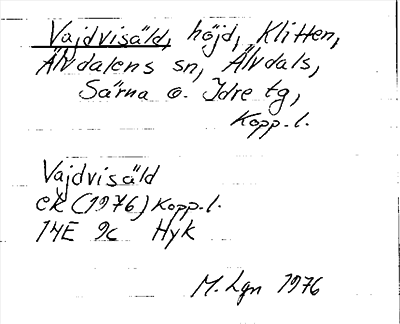 Vajdvisäld, höjd, Klitten,
Älvdalens sn, Älvdals,
Särna o. Idre tg,
Kopp.l.
Vajdvisäld
ek (1976) Kopp.l.
14E 9c Hyk
M. Lgn 1976